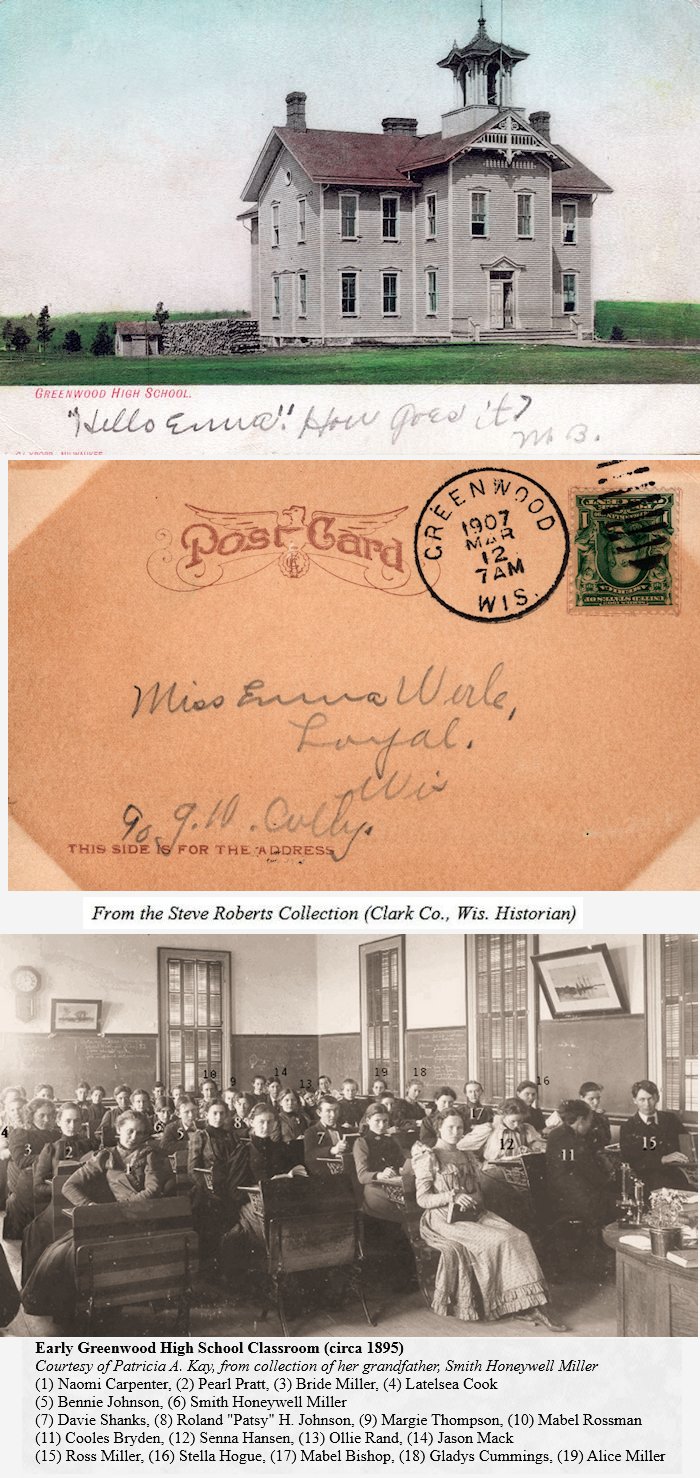 GREENWOOD HIGH SCHOOL.
"Hello Emma". How goes it?
M B.
Post Card
GREENWOOD
1907
MAR
12
7AM
WIS.
Miss Emma Werle,
Loyal.
Wis
THIS SIDE IS FOR THE ADDRESS
From the Steve Roberts Collection (Clark Co., Wis. Historian)
10 9 14 13 19 18 16
4 3 2 1 6 5 8 7 17 12 11 15
Early Greenwood High School Classroom (circa 1895)
Courtesy of Patricia A. Kay, from collection of her grandfather, Smith Honeywell Miller
(1) Naomi Carpenter, (2) Pearl Pratt, (3) Bride Miller, (4) Latelsea Cook
(5) Bennie Johnson, (6) Smith Honeywell Miller
(7) Davie Shanks, (8) Roland "Patsy" H. Johnson, (9) Margie Thompson, (10) Mabel Rossman
(11) Cooles Bryden, (12) Senna Hansen, (13) Ollie Rand, (14) Jason Mack
(15) Ross Miller, (16) Stella Hogue, (17) Mabel Bishop, (18) Gladys Cummings, (19) Alice Miller